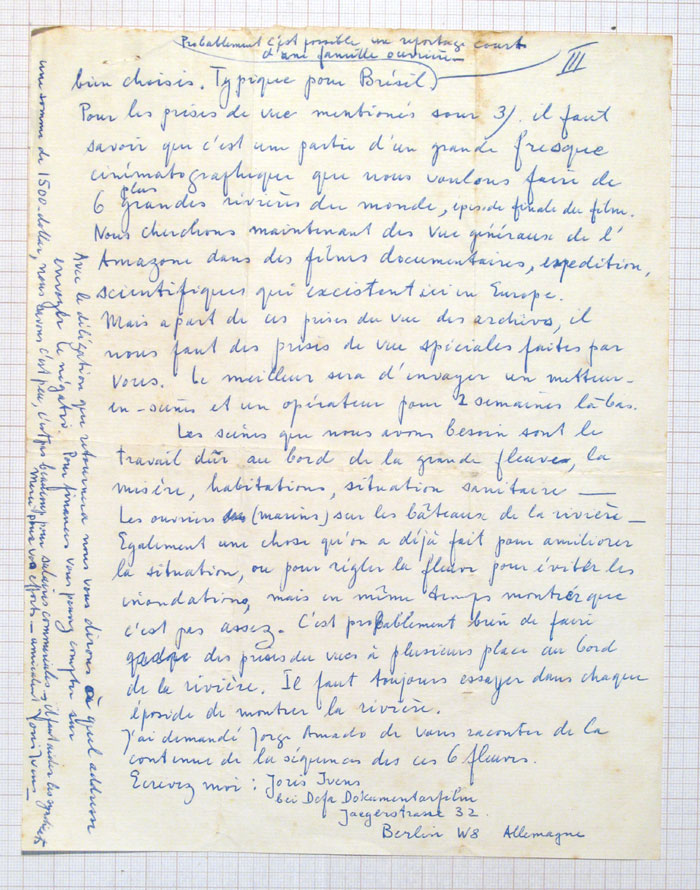 Probablement c'est possible un reportage court
d'une famille ouvrière
III
bien choisis. Typique pour Brésil)
Pour les prises de vue mentionés sour 3). il faut
savoir que c'est une partie d'un grande fresque
cinématographique que nous voulons faire de
6 plus grandes rivières du monde, episode finale du film.
Nous cherchons maintenant des vue généraux de l'
Amazone dans des films documentaires, expedition,
scientifiques qui excistent ici en Europe.
Mais apart de ces prises du vue des archivs, il
nous faut des prises de vue spéciales faites par
vous. Le meilleur sera d'envoyer un metteur-
en-scènes et un opérateur pour 2 semaines là-bas.
Les scènes que nous avons besoin sont le
travail dûr au bord de la grande fleuve, la
misère, habitations, situation sanitaire —
Les ouvriers (marins) sur les bâteaux de la rivière —
Egalement une chose qu'on a déjà fait pour amiliorer
la situation, ou pour règler la fleuve pour éviter les
inondations, mais en même temps montrér que
c'est pas assez. C'est probablement bien de faire
des prises du vues à plusieurs place au bord
de la rivière. Il faut toujours essayer dans chaque
époside de montrer la rivière.
J'ai demandé Jorge Amado de vous raconter de la
contenue de la séquences des ces 6 fleuves.
Ecrevez moi : Joris Ivens
bei Defa Dokumentarfilm
Jaegerstrasse 32.
Berlin W8 Allemagne
Avec la délégation que retournera nous vous dirons à quel addresse
envoyer le négativ. Pour finances vous pouvez compter sur
une somme de 1500-dollar, nous savons c'est peu, c'est pas beaucoup pour salaires commerciales, il faut aider les syndicats
Merci pour vos efforts — amicalement Joris Ivens —